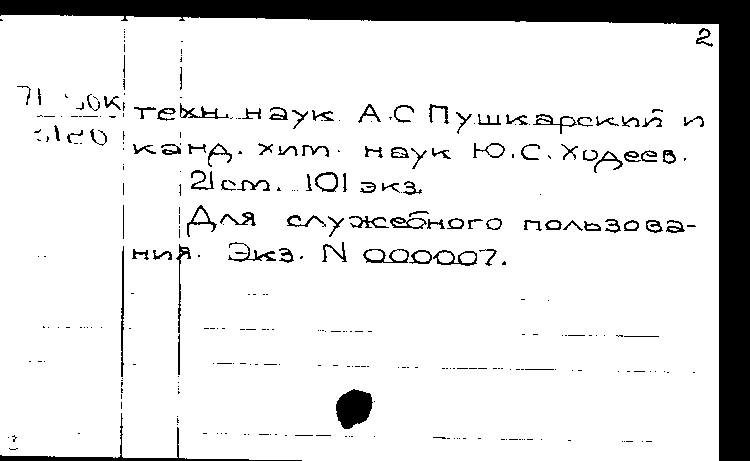 2
техн. наук А.С Пушкарский и
канд. хим. наук Ю.С. Ходеев.
21 cm. 101 экз.
Для служебного пользова-
ния. Экз. N 000007.